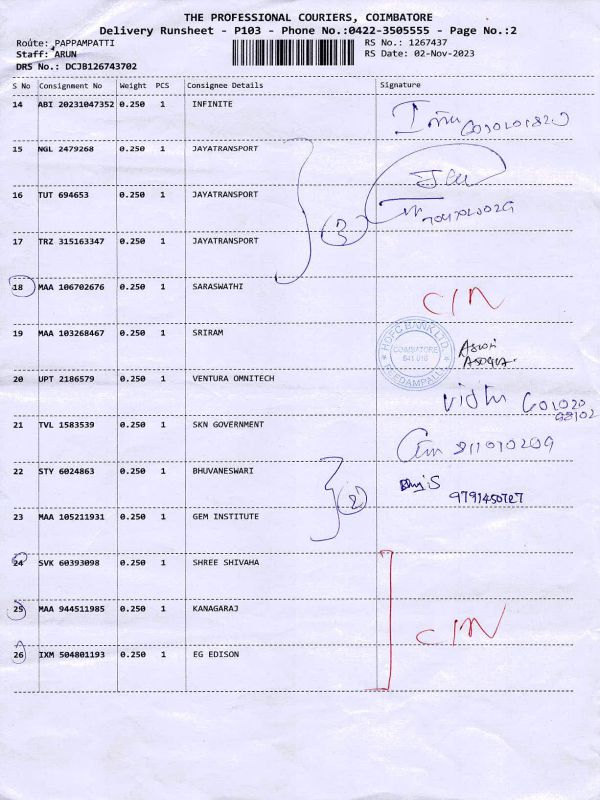 THE PROFESSIONAL COURIERS, COIMBATORE
Delivery Runsheet - P103 - Phone No.:0422-3505555 - Page No.:2
Route: PAPPAMPATTI RS No.: 1267437
Staff: ARUN RS Date: 02-Nov-2023
DRS No.: DCJB126743702
S No Consignment No Weight PCS Consignee Details Signature
14 ABI 20231047352 0.250 1 INFINITE
15 NGL 2479268 0.250 1 JAYATRANSPORT
16 TUT 694653 0.250 1 JAYATRANSPORT
3
17 TRZ 315163347 0.250 1 JAYATRANSPORT
18 MAA 106702676 0.250 1 SARASWATHI C/N
19 MAA 103268467 0.250 1 SRIRAM
HDFC BANK LTD.
COIMBATORE
641 016
20 UPT 2186579 0.250 1 VENTURA OMNITECH
21 TVL 1583539 0.250 1 SKN GOVERNMENT
22 STY 6024863 0.250 1 BHUVANESWARI
2 9791450727
23 MAA 105211931 0.250 1 GEM INSTITUTE
24 SVK 60393098 0.250 1 SHREE SHIVAHA
25 MAA 944511985 0.250 1 KANAGARAJ C/N
26 IXM 504801193 0.250 1 EG EDISON